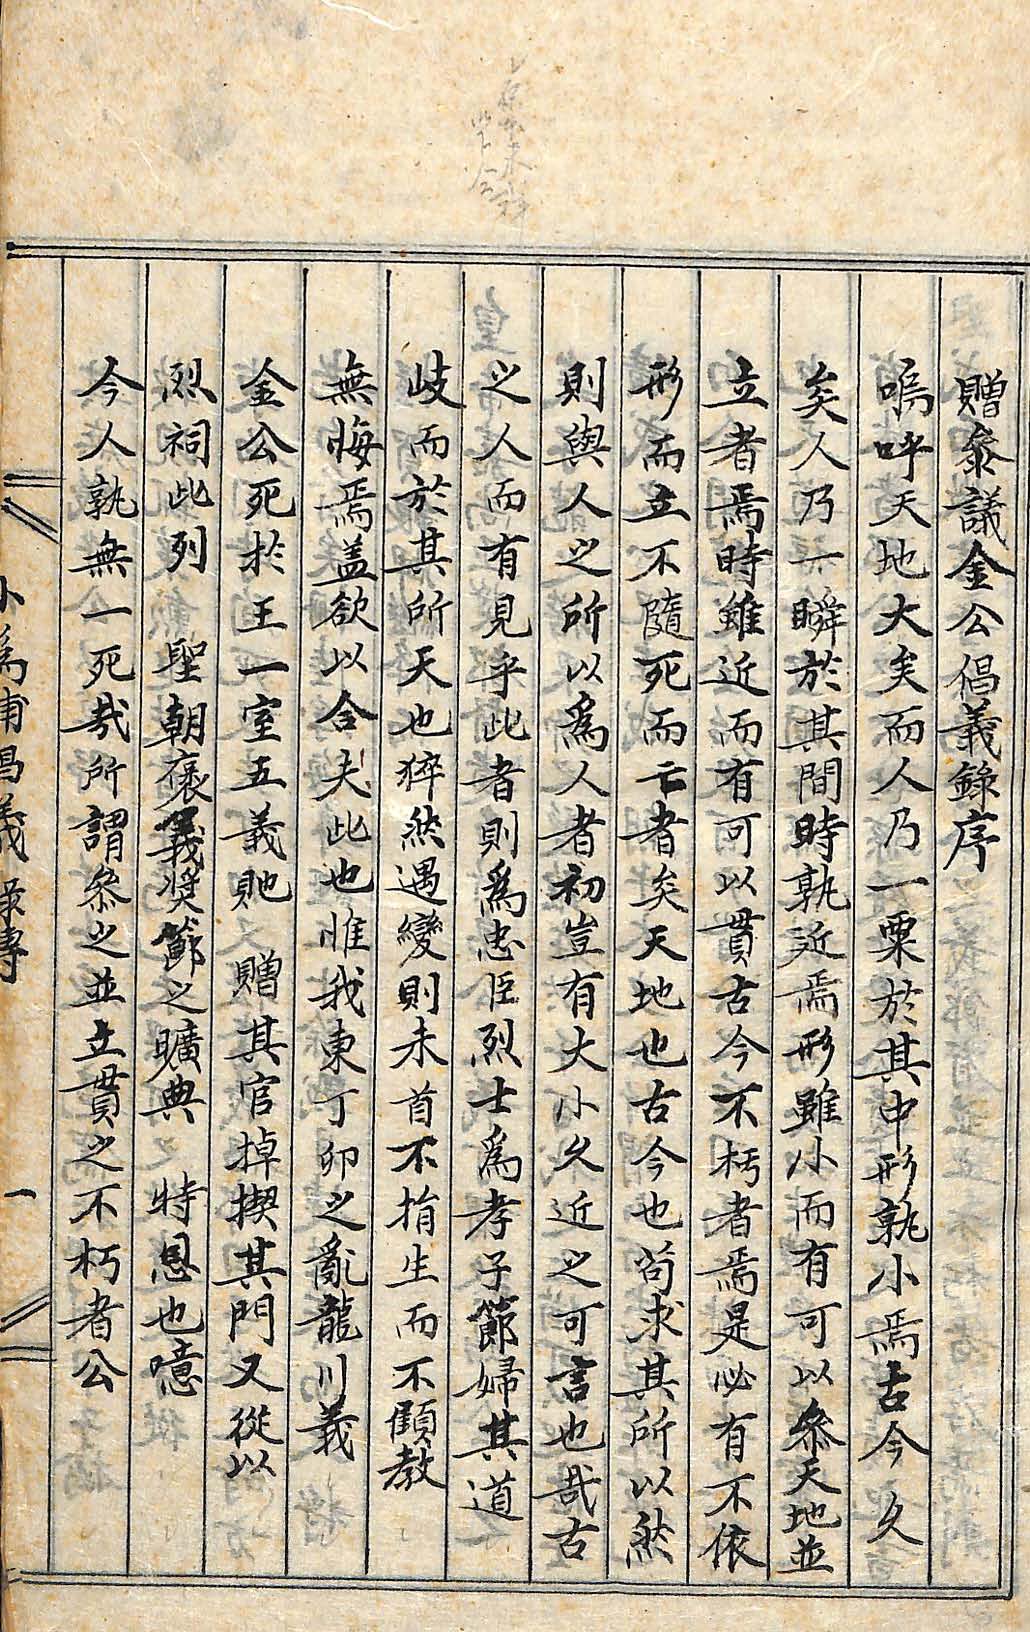 贈叅議金公倡義錄序
嗚呼天地大矣而人乃一粟於其中形孰小焉古今久
矣人乃一瞬於其間時孰近焉形雖小而有可以叅天地並
立者焉時雖近而有可以貫古今不朽者焉是必有不依
形而立不隨死而亡者矣天地也古今也苟求其所以然
則與人之所以爲人者初豈有大小久近之可言也哉古
之人而有見乎此者則爲忠臣烈士爲孝子節婦其道
歧而於其所天也猝然遇變則未首不捐生而不顧教
無悔焉盖欲以合夫此也惟我東丁卯之亂龍川義
金公死於王一室五義貤贈其官掉楔其門又從以
烈祠此列 聖朝褒義奬節之曠典 特恩也噫
今人孰無一死哉所謂叅之並立貫之不朽者公
一